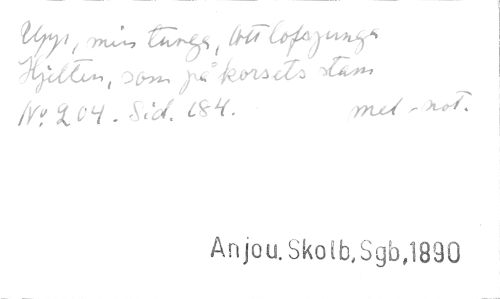 Upp, min tunga, att lofsjunga
Hjelten, som på korsets stam
No 204. Sid. 184. mel-not.
Anjou. Skolb, Sgb, 1890